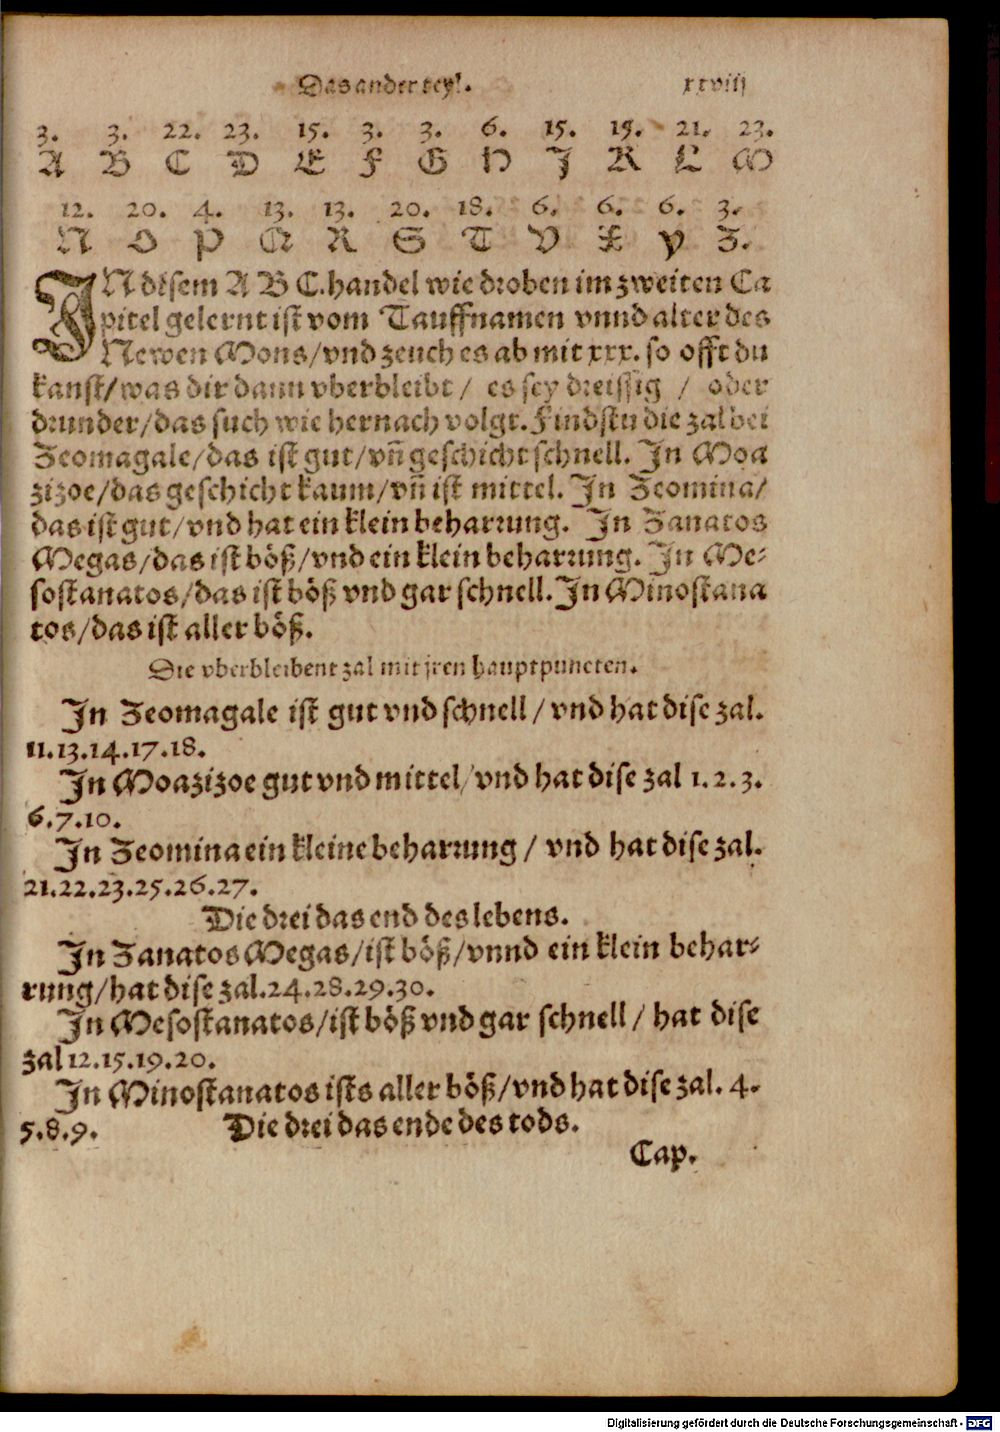 Das ander teyl. xxviij
3. 3. 22. 23. 15. 3. 3. 6. 15. 15. 21. 23.
A B C D E F G H J K L M
12. 20. 4. 13. 13. 20. 18. 6. 6. 6. 3.
N O P Q R S T V X Y Z.
JN disem A B C. handel wie droben im zweiten Ca
pitel gelernt ist vom Tauffnamen vnnd alter des
Newen Mons/vnd zeuch es ab mit xxx. so offt du
kanst/was dir dann vberbleibt / es sey dreissig / oder
drunder/das such wie hernach volgt. Findstu die zal bei
Zeomagale/das ist gut/vñ geschicht schnell. Jn Moa
zizoe/das geschicht kaum/vñ ist mittel. Jn Zeomina/
das ist gut/vnd hat ein klein beharrung. Jn Zanatos
Megas/das ist böß/vnd ein klein beharrung. Jn Me-
sostanatos/das ist böß vnd gar schnell. Jn Minostana
tos/das ist aller böß.
Die vberbleibent zal mit jren hauptpuncten.
Jn Zeomagale ist gut vnd schnell / vnd hat dise zal.
11.13.14.17.18.
Jn Moazizoe gut vnd mittel/vnd hat dise zal 1.2.3.
6.7.10.
Jn Zeomina ein kleine beharrung / vnd hat dise zal.
21.22.23.25.26.27.
Die drei das end des lebens.
Jn Zanatos Megas/ist böß/vnnd ein klein behar-
rung/hat dise zal.24.28.29.30.
Jn Mesostanatos/ist böß vnd gar schnell / hat dise
zal 12.15.19.20.
Jn Minostanatos ists aller böß/vnd hat dise zal. 4.
5.8.9. Die drei das ende des tods.
Cap.
Digitalisierung gefördert durch die Deutsche Forschungsgemeinschaft - DFG